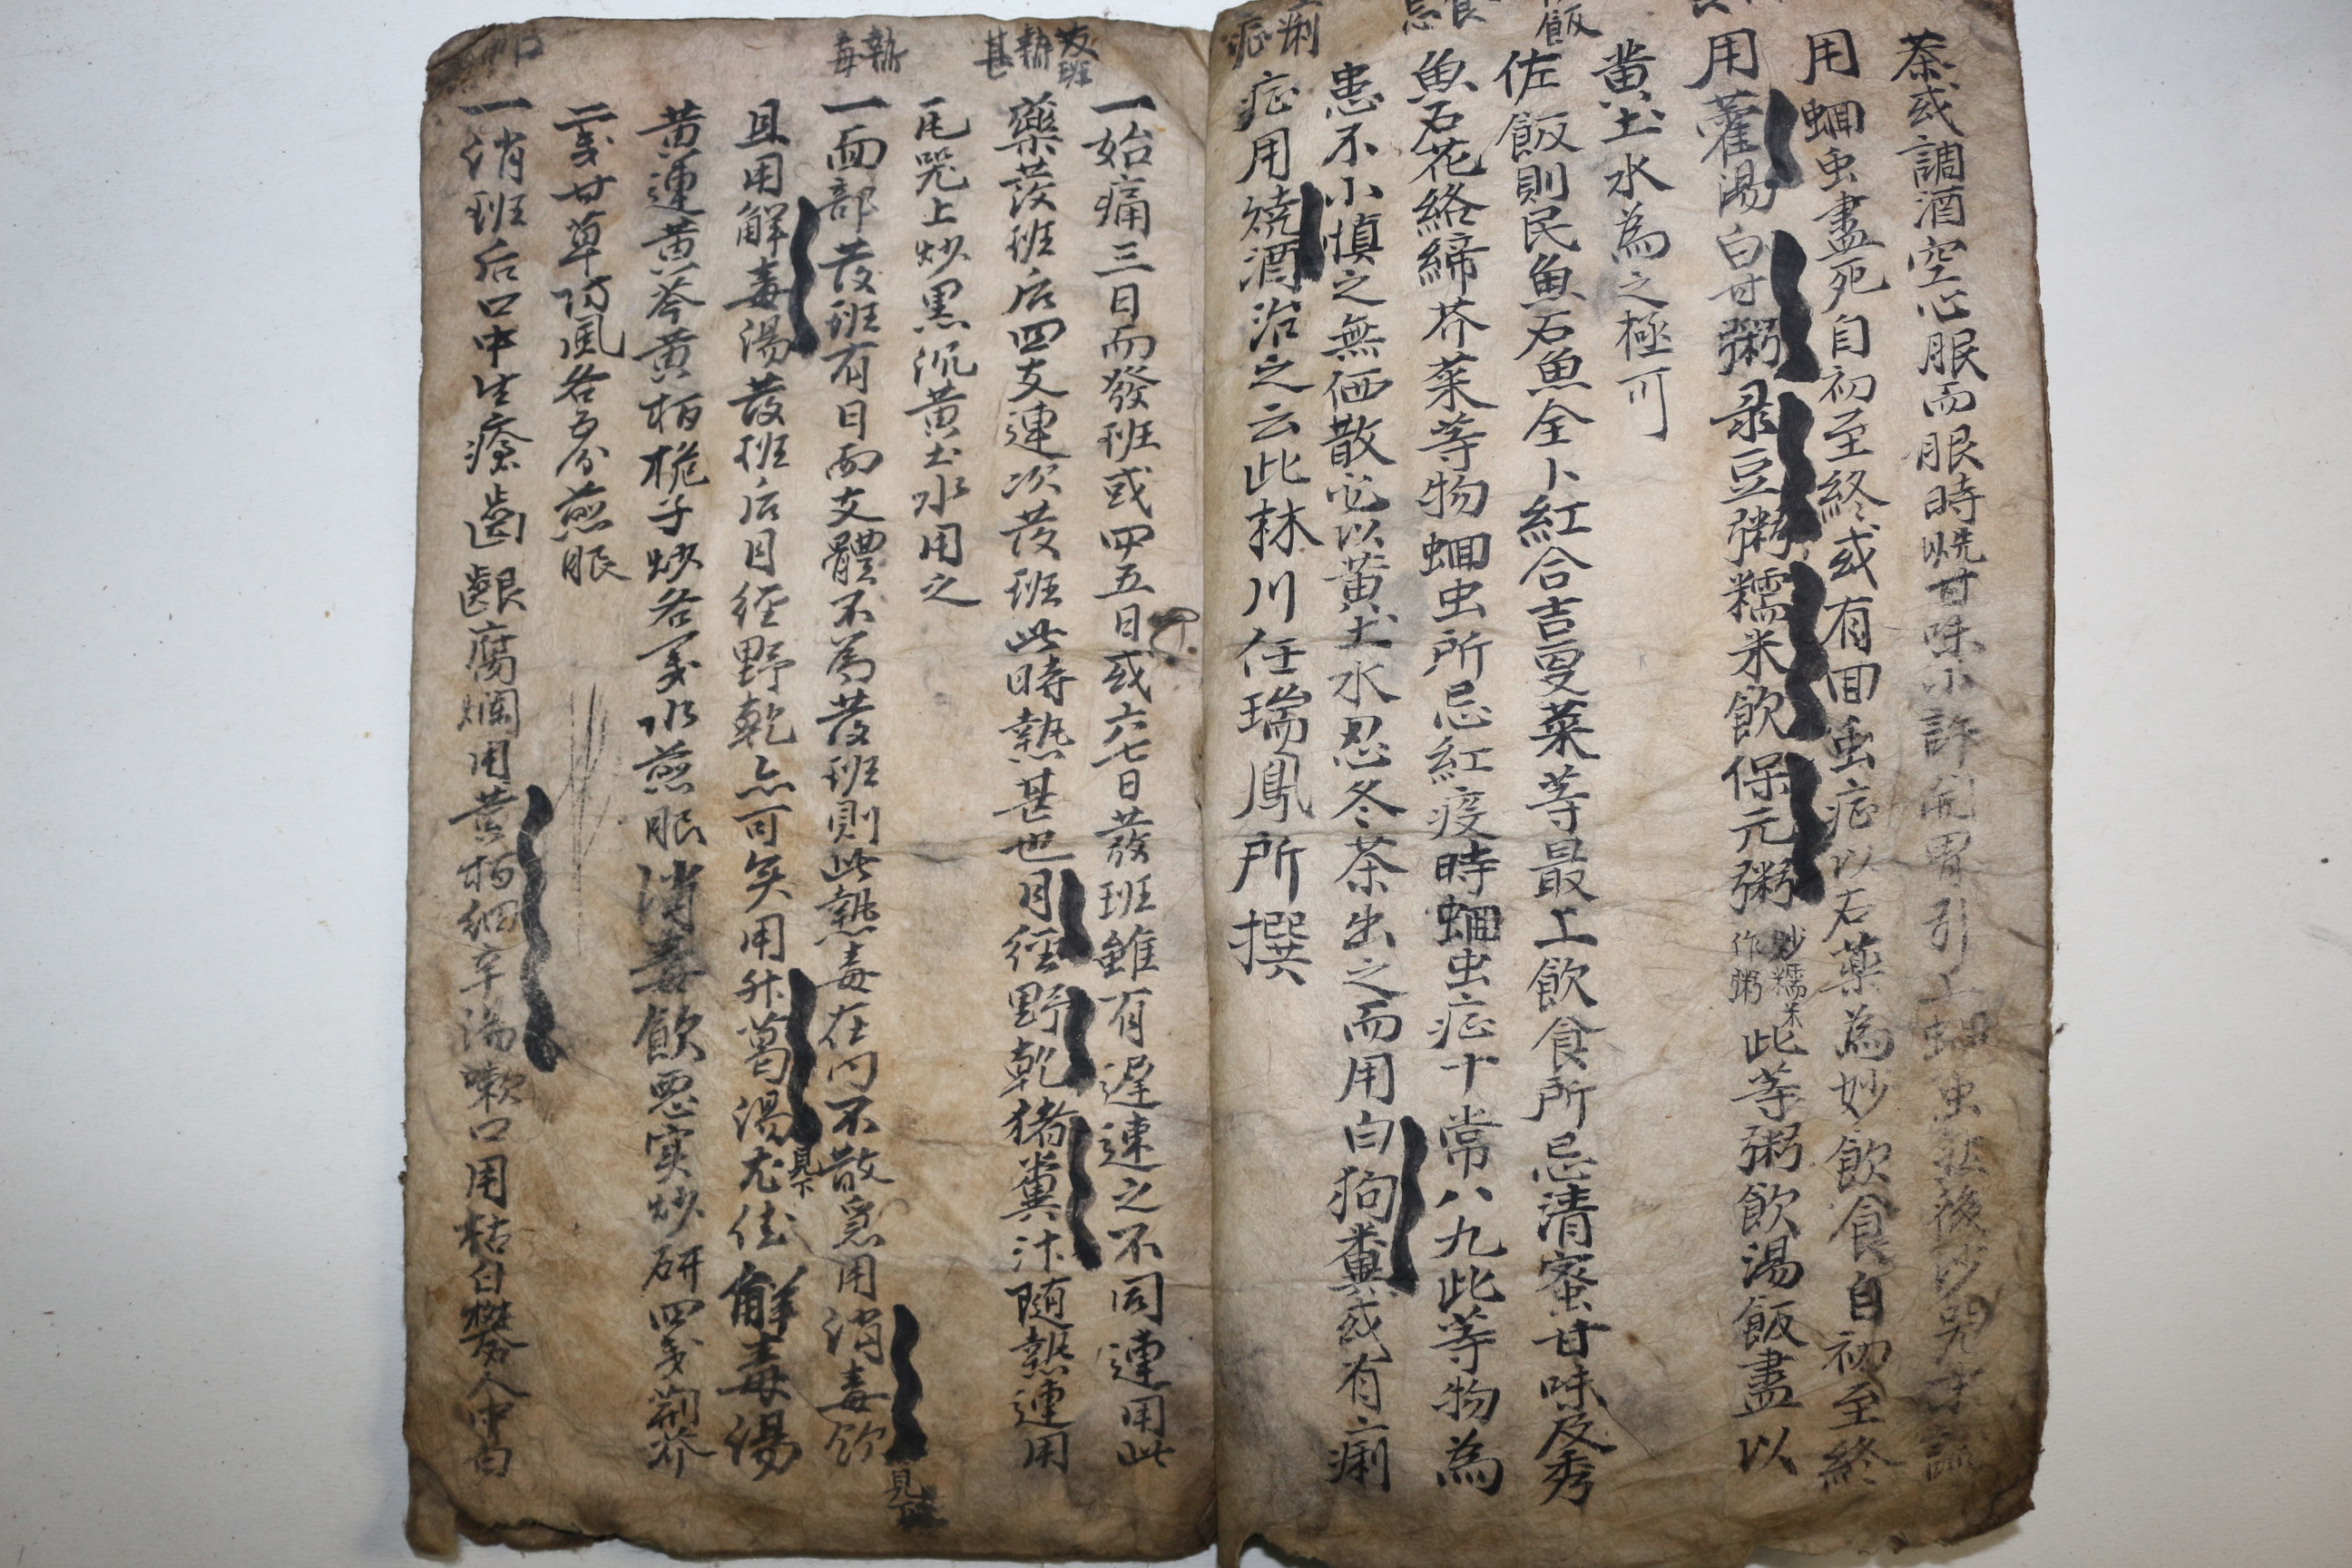 茶或調酒空心服而服時燒甘味小許開胃引上蛔虫然後
用蛔虫盡死自初至終或有回虫症以右藥為妙飲食自初至終
用藿湯白甘粥彔豆粥糯米飮保元粥炒糯米作粥此等粥飮湯飯盡以
黃土水為之極可
佐飯則民魚石魚全卜紅合吉更菜等最上飮食所忌清蜜甘味及秀
魚石花絡締芥菜等物蛔虫所忌紅疫時蛔虫症十常八九此等物為
患不小愼之無価散必以黃土水忍冬茶出之而用白狗糞或有亠痢
症用燒酒治之云此林川任瑞鳳所撰
痢症
發班熱甚
一始痛三日而發班或四五日或六七日發班雖有遲速之不同連用此
藥發班后四支連次發班此時熱甚也月徑野乾猪糞汁隨熱連用
瓦哭上炒黑沉黃土水用之
熱毒
一面部發班有日而支體不為發班則此熱毒在內不散爲用消毒飮見
且用解毒湯發班后月經野乾亦可矣用升葛湯見下尤佳解毒湯
黃連黃芩黃柏梔子炒各戔水煎服消毒飮惡实炒研四戔荊芥
二戔甘草防風各五分煎服
一消班后口中生瘡齒齦腐爛用黃柏細辛湯嗽口用枯白礬人中白